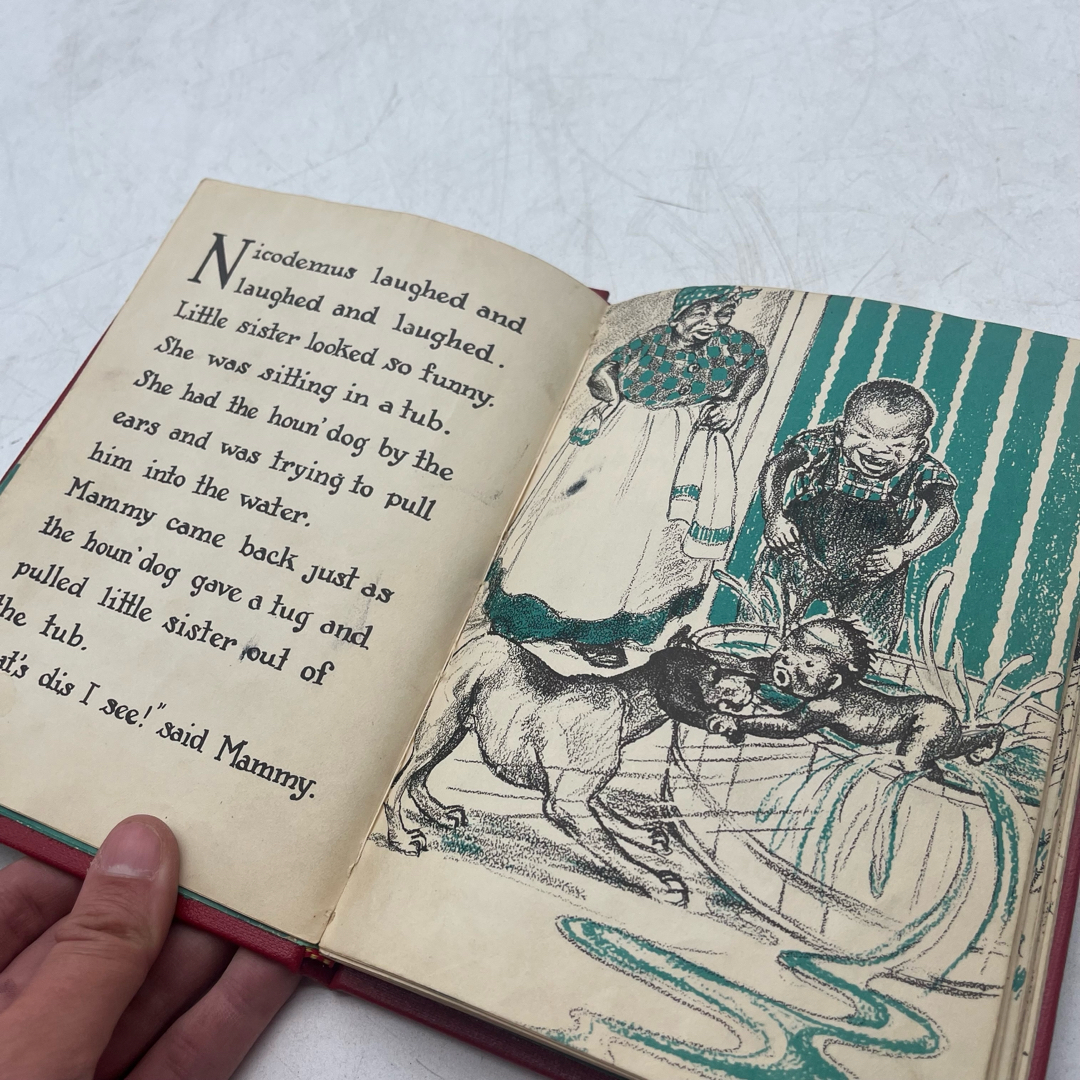 Nicodemus laughed and
laughed and laughed.
Little sister looked so funny.
She was sitting in a tub.
She had the houn'dog by the
ears and was trying to pull
him into the water.
Mammy came back just as
the houn'dog gave a tug and
pulled little sister out of
the tub.
at's dis I see!" said Mammy.